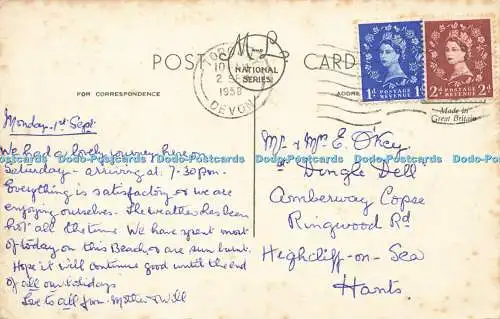 POST CARD
M & L
NATIONAL
SERIES
TORQUAY
2 SEP
1958
DEVON
1d POSTAGE REVENUE 1d
2d POSTAGE REVENUE 2d
FOR CORRESPONDENCE
ADDRESS
Made in
Great Britain
Monday. 1st Sept.
We had a lovely journey here on
Saturday – arriving at 7-30pm.
Everything is satisfactory & we are
enjoying ourselves. The weather has been
hot all the time. We have spent most
of today on this Beach, & are sun burnt.
Hope it will continue good until the end
of all our holidays
Love to all from Mother & Will
Mr & Mrs E. O'Key
Dingle Dell
Amberway Copse
Ringwood Rd
Highcliff-on-Sea
Hants.
Todo-Postcards